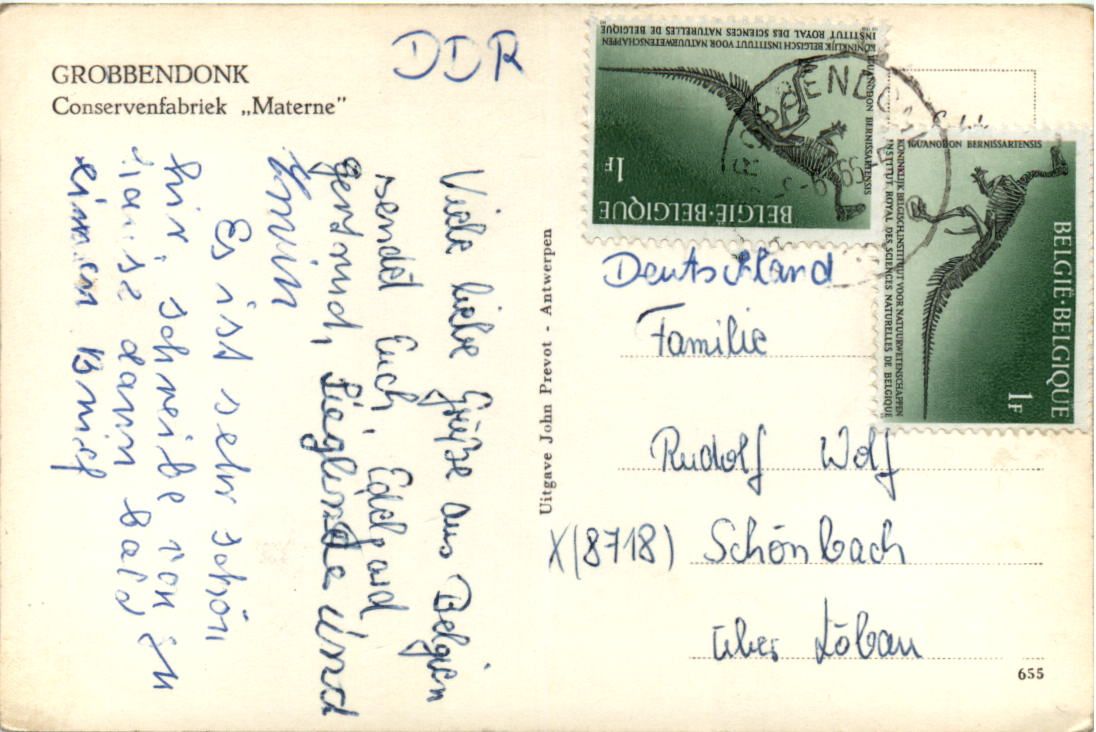 GROBBENDONK
Conservenfabriek „Materne”
DDR
Viele liebe Grüße aus Belgien
sendet Euch, Edelgard
Gertrud, Sieglinde und
Erwin
Es ist sehr schön
hir, schreibe von zu
Hause dann bald
einen Brief
Uitgave John Prevot - Antwerpen
KONINKLIJK BELGISCH INSTITUUT VOOR NATUURWETENSCHAPPEN
INSTITUT ROYAL DES SCIENCES NATURELLES DE BELGIQUE
IGUANODON BERNISSARTENSIS
1F
BELGIË·BELGIQUE
IGUANODON BERNISSARTENSIS
KONINKLIJK BELGISCH INSTITUUT VOOR NATUURWETENSCHAPPEN
INSTITUT ROYAL DES SCIENCES NATURELLES DE BELGIQUE
BELGIË·BELGIQUE
1F
Deutschland
Familie
Rudolf Wolf
X(8718) Schönbach
über Löbau
655